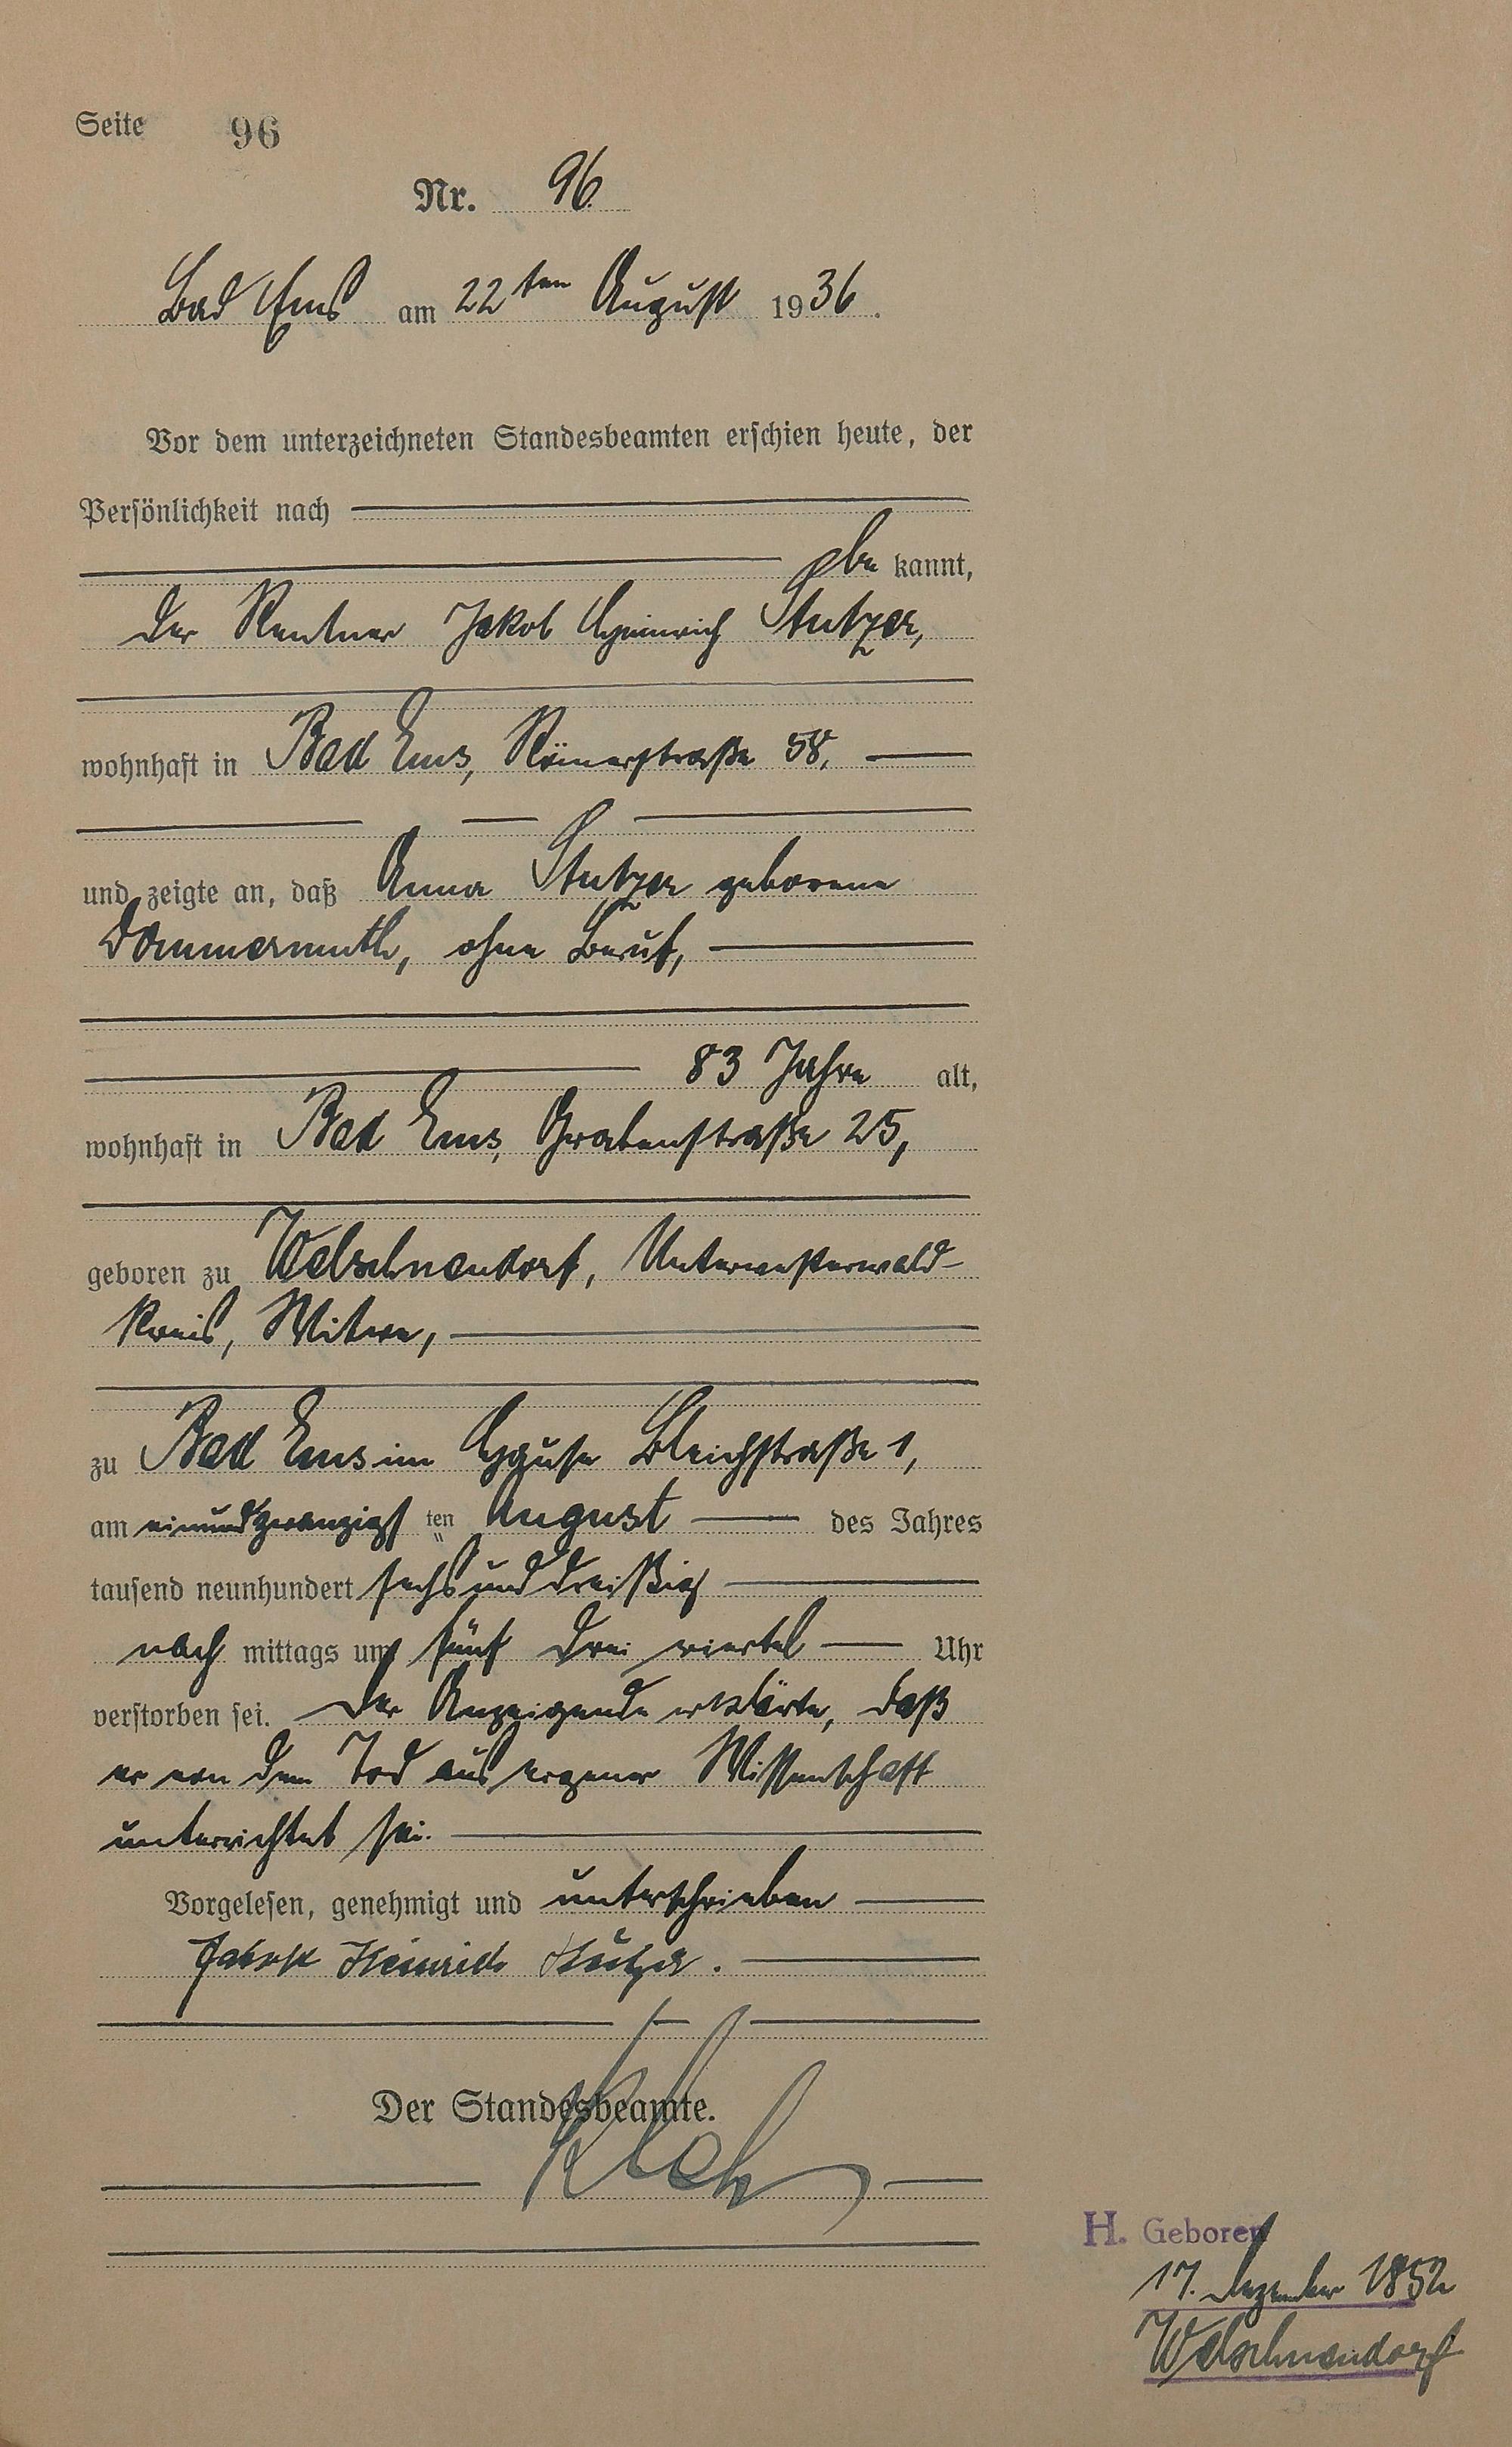 Seite 96
Nr. 96.
Bad Ems am 22ten August 1936.
Vor dem unterzeichneten Standesbeamten erschien heute, der
Persönlichkeit nach
be kannt,
der Rentner Jakob Heinrich Stutzer,
wohnhaft in Bad Ems, Römerstraße 58,
und zeigte an, daß Anna Stutzer geborene
Dommermuth, ohne Beruf,
83 Jahre alt,
wohnhaft in Bad Ems, Grabenstraße 25,
geboren zu Welschneudorf, Unterwesterwald-
kreis, Witwe,
zu Bad Ems im Hause Bleichstraße 1,
am einundzwanzigsten August des Jahres
tausend neunhundert sechs und dreißig
nach mittags um fünf drei viertel Uhr
verstorben sei. Der Anzeigende erklärte, daß
er von dem Tod aus eigener Wissenschaft
unterrichtet sei.
Vorgelesen, genehmigt und unterschrieben
Jakob Heinrich Stutzer.
Der Standesbeamte.
H. Geboren
17. Dezember 1852
Welschneudorf